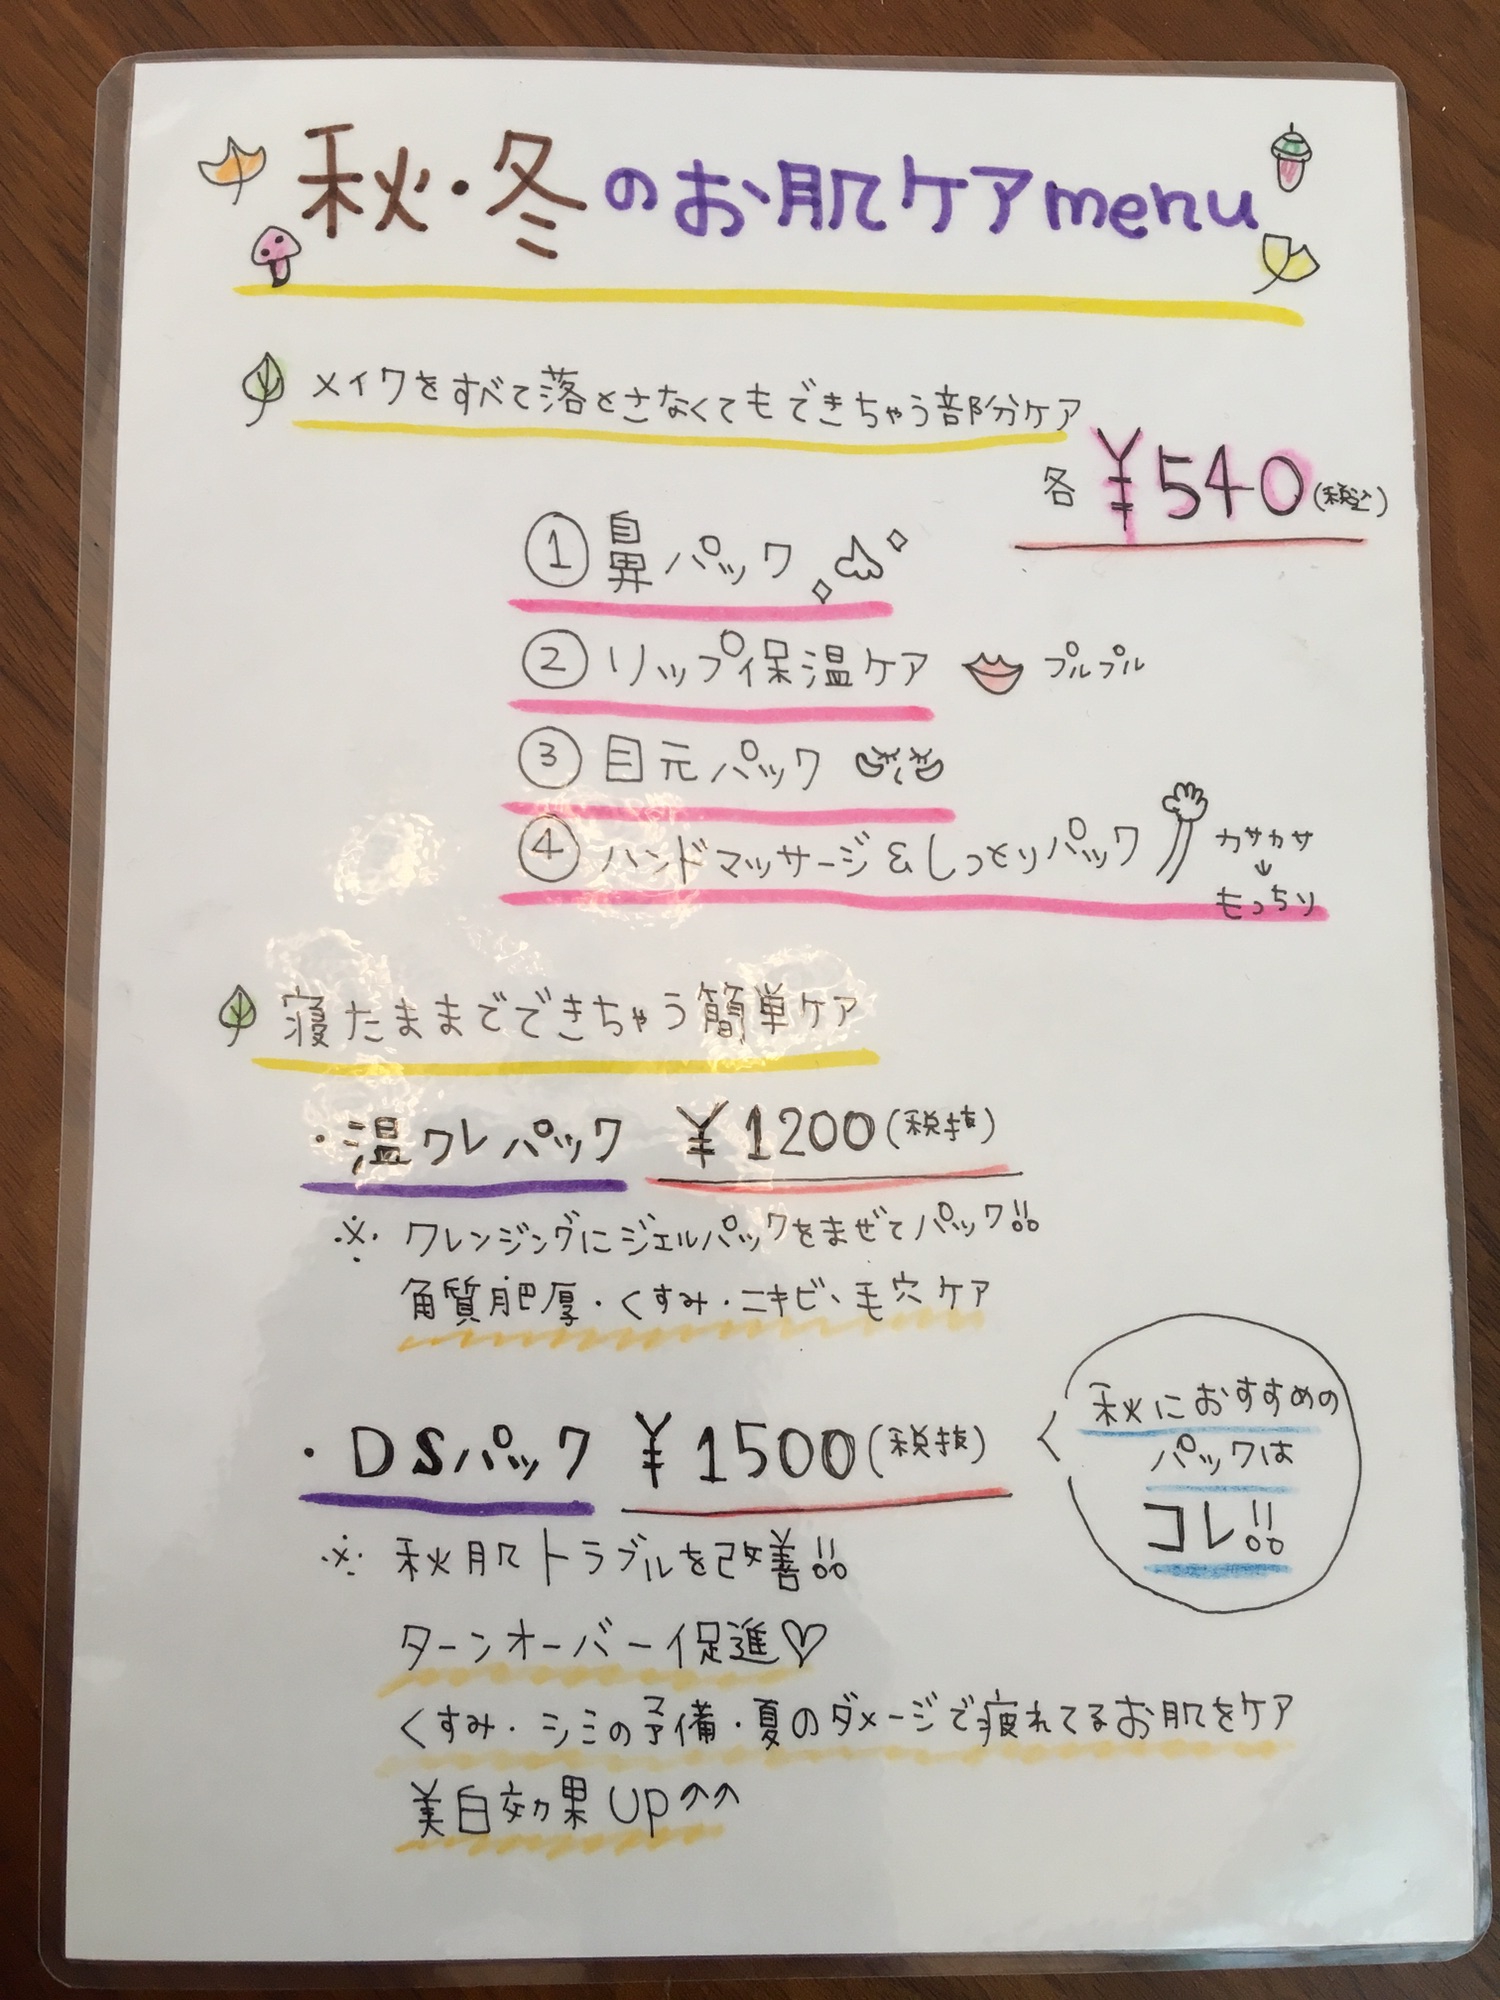 秋・冬のお肌ケアmenu
メイクをすべて落とさなくてもできちゃう部分ケア
各 ¥540(税込)
①鼻パック
②リップ保温ケア プルプル
③目元パック
④ハンドマッサージ&しっとりパック
カサカサ
↓
もっちり
寝たままでできちゃう簡単ケア
・温クレパック ¥1200(税抜)
※クレンジングにジェルパックをまぜてパック!!
角質肥厚・くすみ・ニキビ、毛穴ケア
・DSパック ¥1500(税抜)
秋におすすめの
パックは
コレ!!
※秋肌トラブルを改善!!
ターンオーバー促進♡
くすみ・シミの予備・夏のダメージで疲れてるお肌をケア
美白効果up↑↑